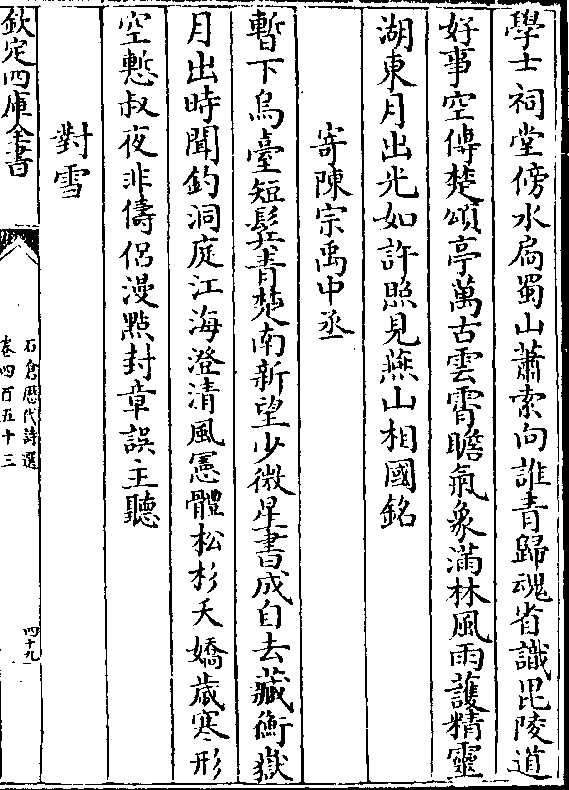 學士祠堂傍水扃蜀山蕭索向誰青歸魂省識毘陵道
好事空傳楚頌亭萬古雲霄瞻氣象滿林風雨護精靈
湖東月出光如許照見燕山相國銘
寄陳宗禹中丞
暫下烏臺短髩青楚南新望少微星書成自去藏衡嶽
月出時聞釣洞庭江海澄清風憲體松杉夭矯歲寒形
空慙叔夜非儔侣漫點封章誤主聽
對雪
欽定四庫全書
石倉歴代詩選
卷四百五十三
四十九